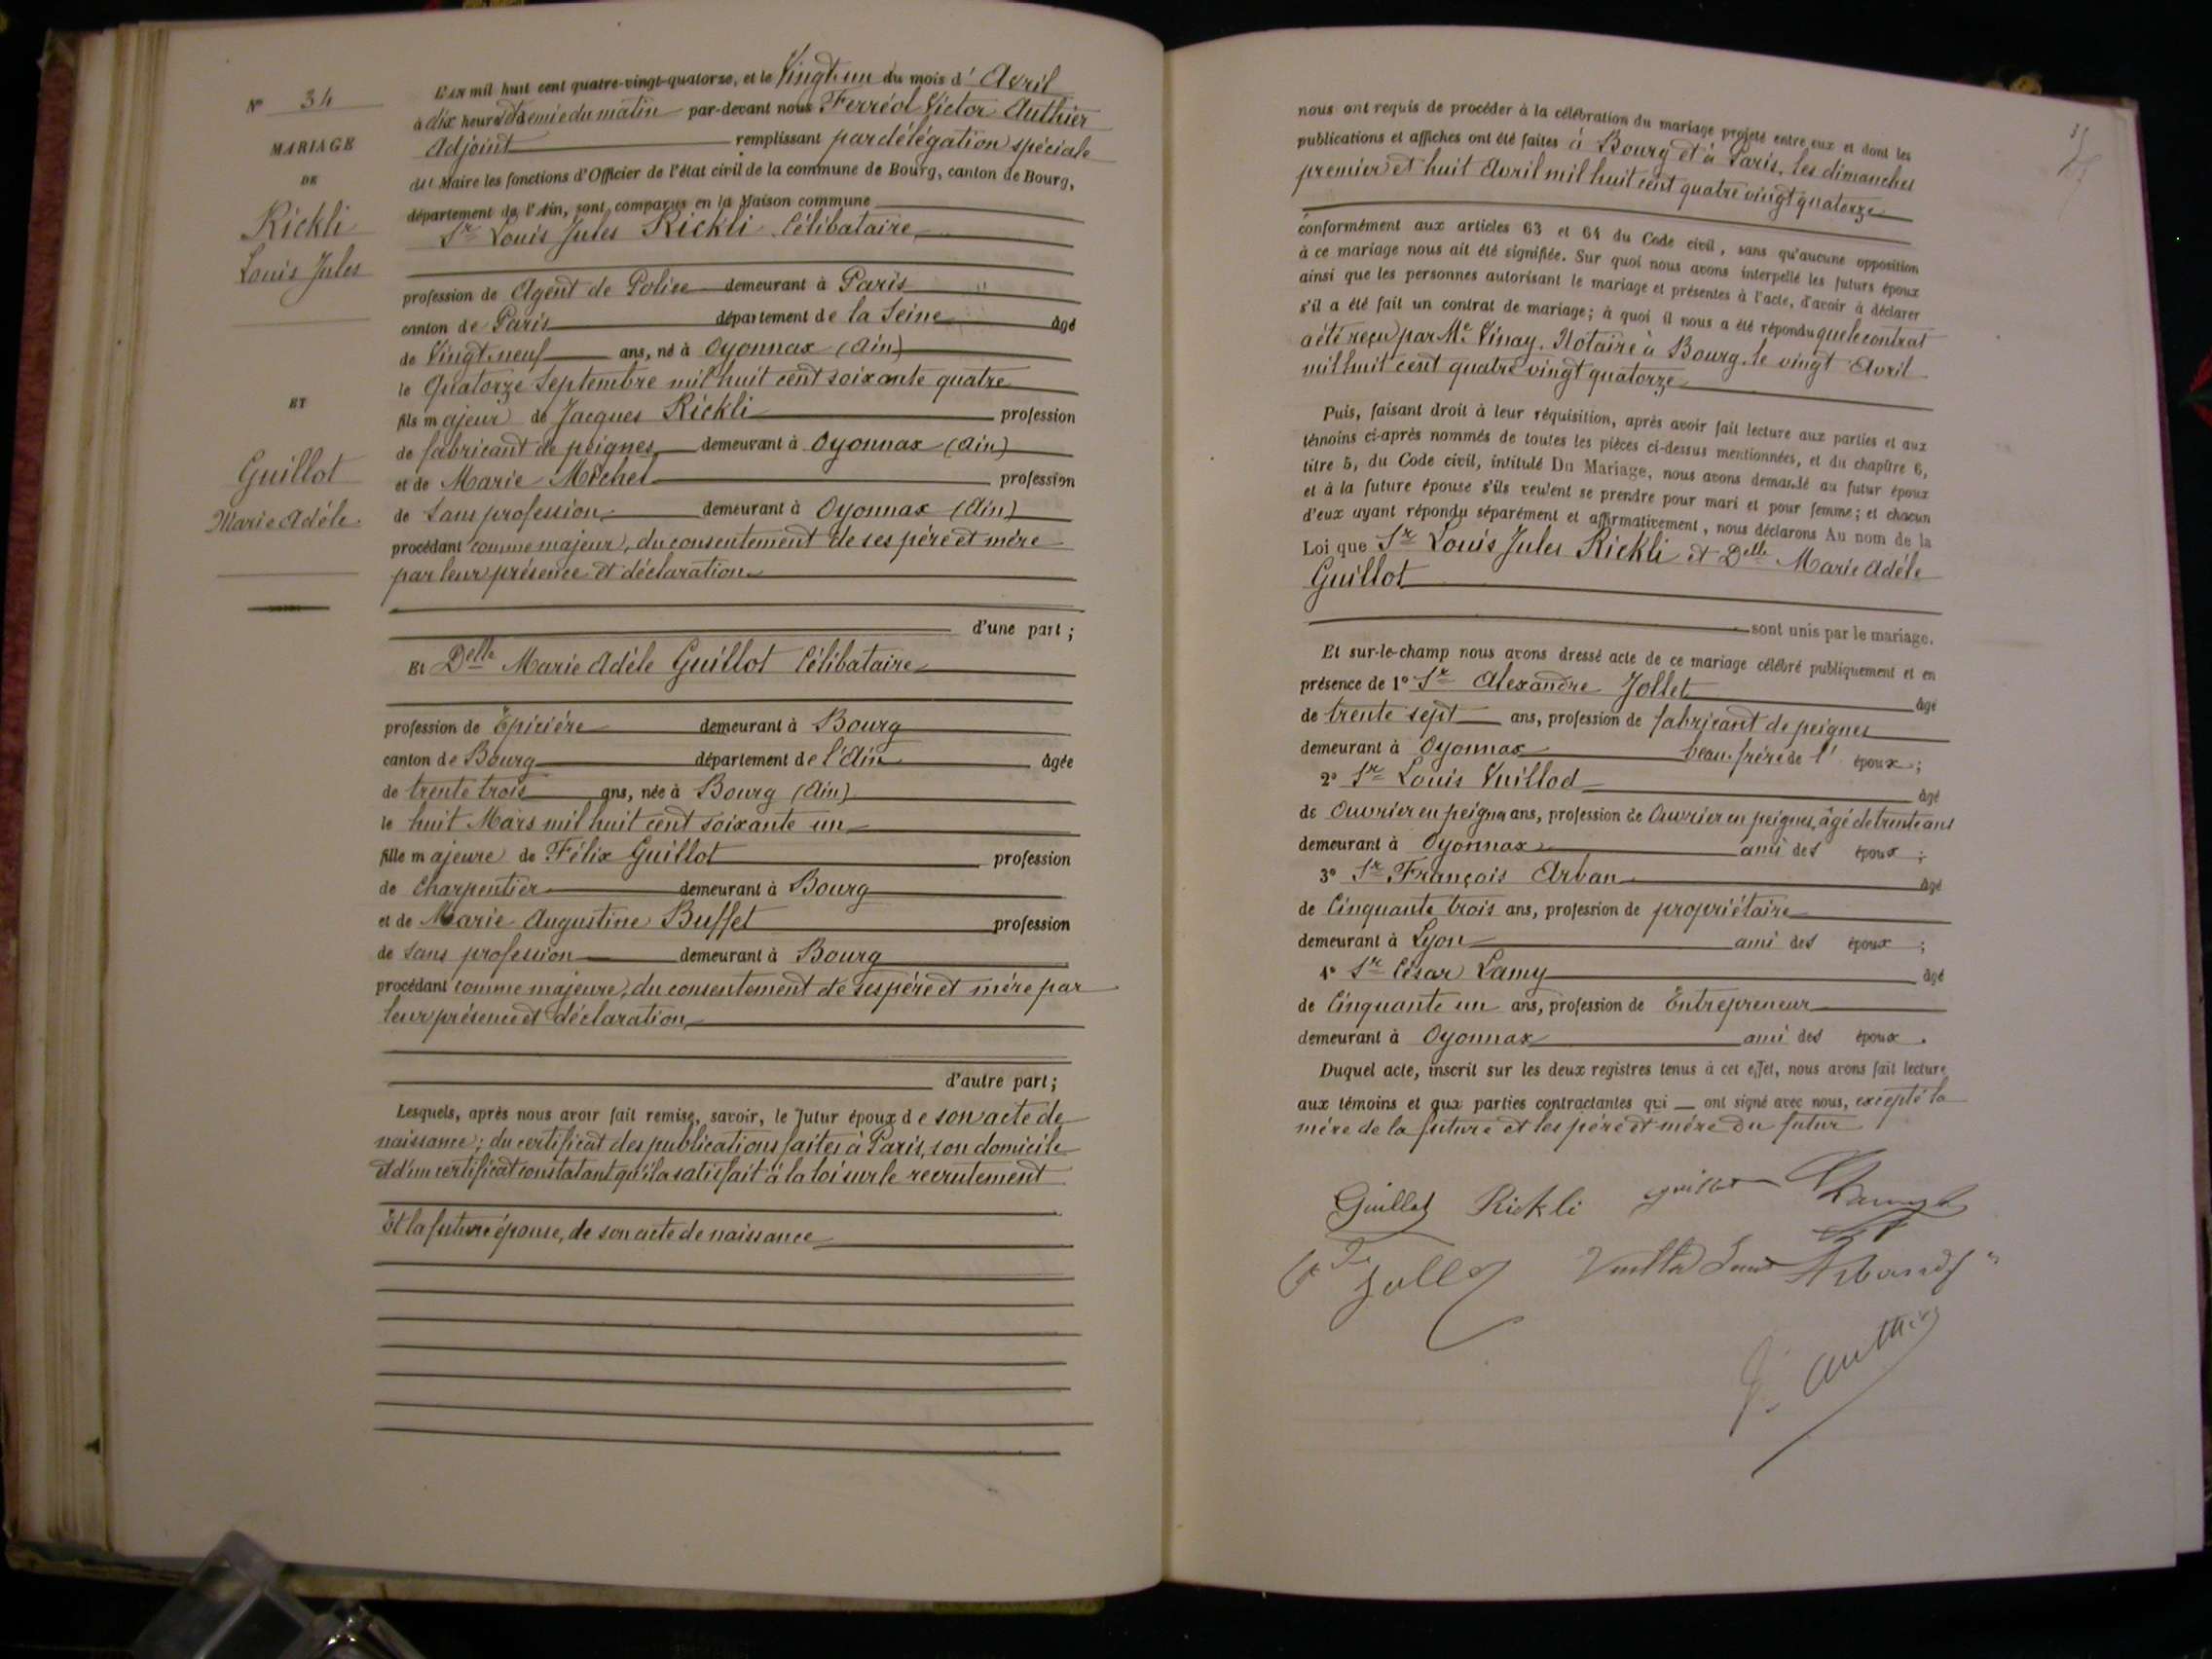 N° 34
MARIAGE
DE
Rickli
Louis Jules
ET
Guillot
Marie Adèle
L'an mil huit cent quatre-vingt-quatorze, et le Vingt-un du mois d' Avril
à dix heures & demie du matin par-devant nous Ferréol Victor Authier
Adjoint remplissant par délégation spéciale
du Maire les fonctions d'Officier de l'état civil de la commune de Bourg, canton de Bourg,
département de l'Ain, sont comparus en la Maison commune
Sr Louis Jules Rickli Célibataire
profession de Agent de Police demeurant à Paris
canton de Paris département de la Seine âgé
de Vingt-neuf ans, né à Oyonnax (Ain)
le Quatorze Septembre mil huit cent soixante quatre
fils majeur de Jacques Rickli profession
de fabricant de peignes demeurant à Oyonnax (Ain)
et de Marie Michel profession
de Sans profession demeurant à Oyonnax (Ain)
procédant comme majeur, du consentement de ses père et mère
par leur présence et déclaration
d'une part ;
Et Delle Marie Adèle Guillot Célibataire
profession de Epicière demeurant à Bourg
canton de Bourg département de l'Ain âgée
de trente trois ans, née à Bourg (Ain)
le huit Mars mil huit cent soixante un
fille majeure de Félix Guillot profession
de Charpentier demeurant à Bourg
et de Marie Augustine Buffet profession
de Sans profession demeurant à Bourg
procédant comme majeure, du consentement de ses père et mère par
leur présence et déclaration
d'autre part ;
Lesquels, après nous avoir fait remise, savoir, le futur époux de son acte de
naissance ; du certificat des publications faites à Paris, son domicile
et d'un certificat constatant qu'il a satisfait à la loi sur le recrutement
Et la future épouse, de son acte de naissance
nous ont requis de procéder à la célébration du mariage projeté entre eux et dont les
publications et affiches ont été faites à Bourg et à Paris, les dimanches
premier et huit Avril mil huit cent quatre vingt quatorze
conformément aux articles 63 et 64 du Code civil, sans qu'aucune opposition
à ce mariage nous ait été signifiée. Sur quoi nous avons interpellé les futurs époux
ainsi que les personnes autorisant le mariage et présentes à l'acte, d'avoir à déclarer
s'il a été fait un contrat de mariage ; à quoi il nous a été répondu que le contrat
a été reçu par Me Vinay, Notaire à Bourg, le vingt Avril
mil huit cent quatre vingt quatorze
Puis, faisant droit à leur réquisition, après avoir fait lecture aux parties et aux
témoins ci-après nommés de toutes les pièces ci-dessus mentionnées, et du chapitre 6,
titre 5, du Code civil, intitulé Du Mariage, nous avons demandé au futur époux
et à la future épouse s'ils veulent se prendre pour mari et pour femme ; et chacun
d'eux ayant répondu séparément et affirmativement, nous déclarons Au nom de la
Loi que Sr Louis Jules Rickli et Delle Marie Adèle
Guillot
sont unis par le mariage.
Et sur-le-champ nous avons dressé acte de ce mariage célébré publiquement et en
présence de 1° Sr Alexandre Jollet âgé
de trente sept ans, profession de fabricant de peignes
demeurant à Oyonnax beau-frère de l' époux ;
2° Sr Louis Vuillod âgé
de Ouvrier en peignes ans, profession de Ouvrier en peignes, âgé de trente ans
demeurant à Oyonnax ami des époux ;
3° Sr François Arban âgé
de Cinquante trois ans, profession de propriétaire
demeurant à Lyon ami des époux ;
4° Sr César Lamy âgé
de Cinquante un ans, profession de Entrepreneur
demeurant à Oyonnax ami des époux .
Duquel acte, inscrit sur les deux registres tenus à cet effet, nous avons fait lecture
aux témoins et aux parties contractantes qui ont signé avec nous, excepté la
mère de la future et les père et mère du futur
Guillot Rickli